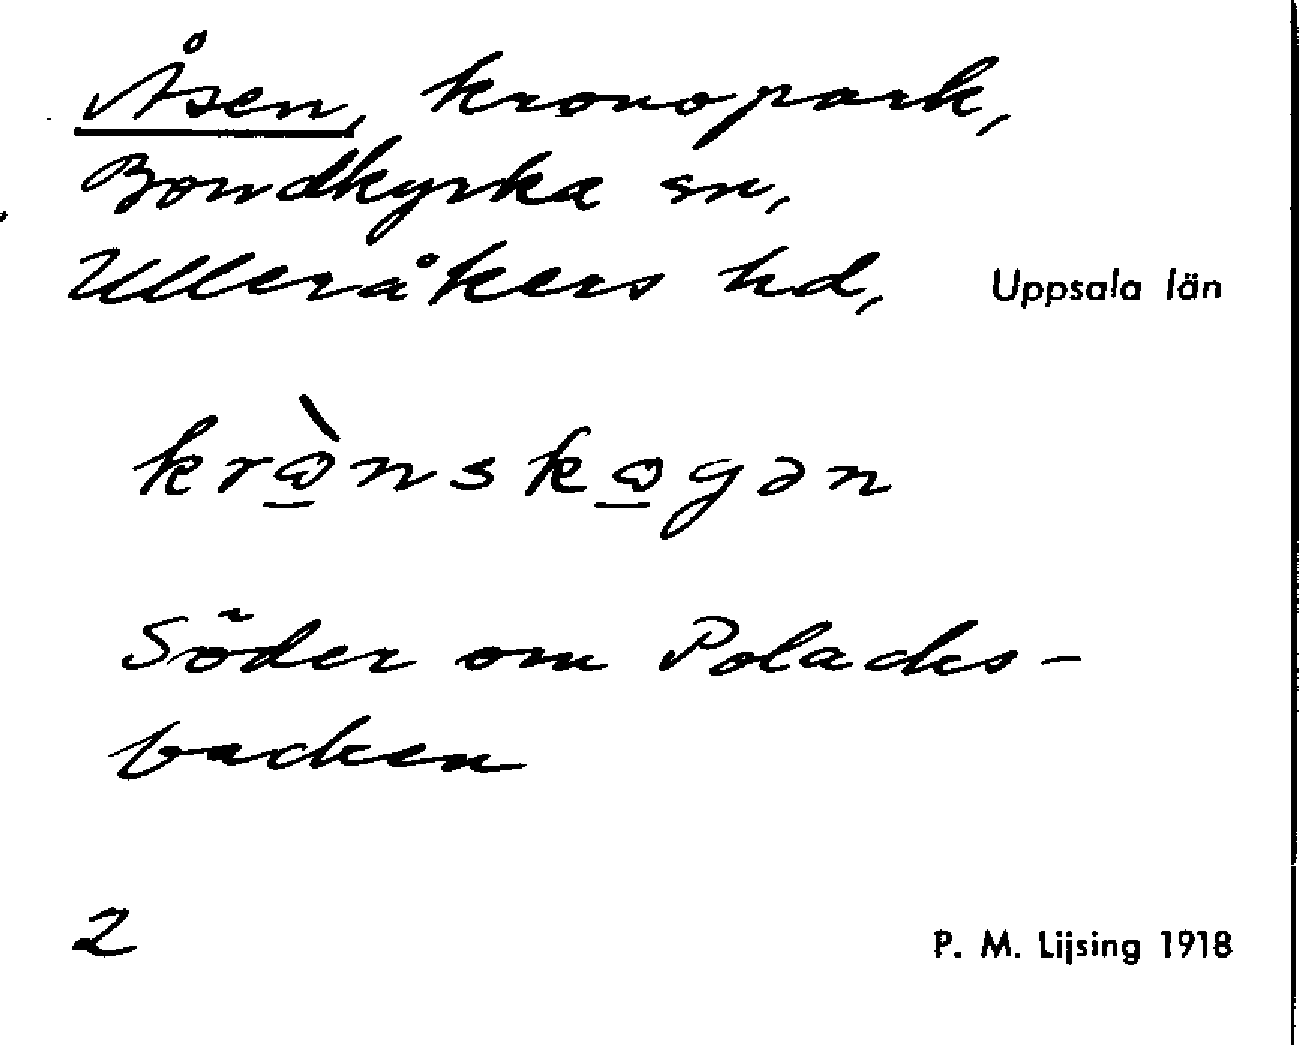 Åsen, kronopark,
Bondkyrka sn,
Ulleråkers hd, Uppsala län
krò̱nsko̱gən
Söder om Polacks-
backen
2 P. M. Lijsing 1918